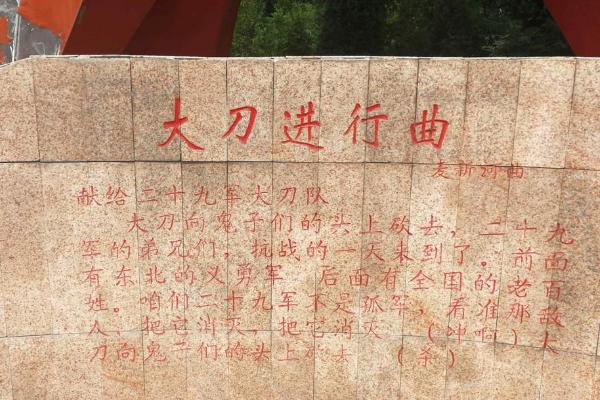 大刀进行曲
麦新词曲
献给二十九军大刀队
大刀向鬼子们的头上砍去,二十九
军的弟兄们,抗战的一天来到了。前面
有东北的义勇军 后面有全国的老百
姓。咱们二十九军不是孤军,看准那敌
人、把它消灭,把它消灭(冲啊)大
刀向鬼子们的头上砍去(杀)